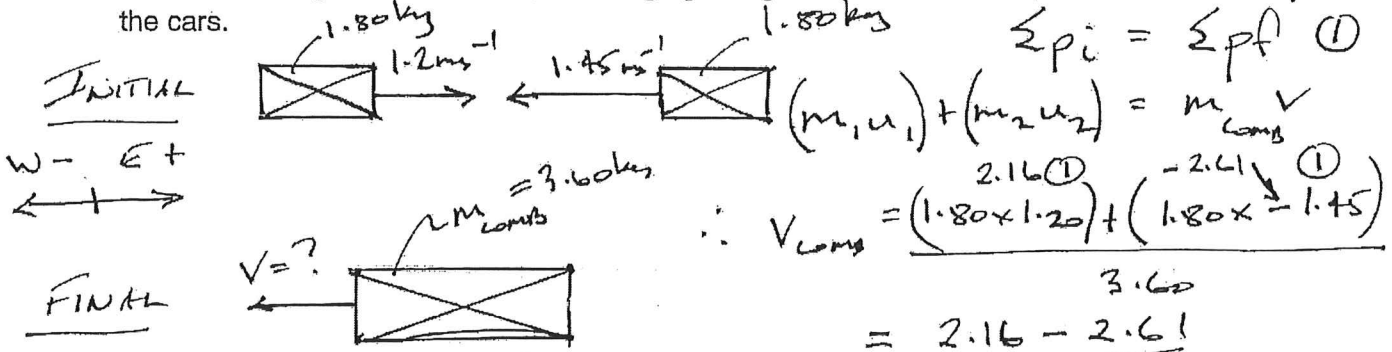 the cars.
1.80kg
1.80kg
Σpi = Σpf ①
INITIAL
1.2ms⁻¹
1.45ms⁻¹
(m₁u₁) + (m₂u₂) = m_comb V
W - E +
2.16 ① -2.61 ①
∴ V_comb = (1.80 x 1.20) + (1.80 x - 1.45)
3.60
= 3.60kg
m_comb
V = ?
FINAL
= 2.16 - 2.61